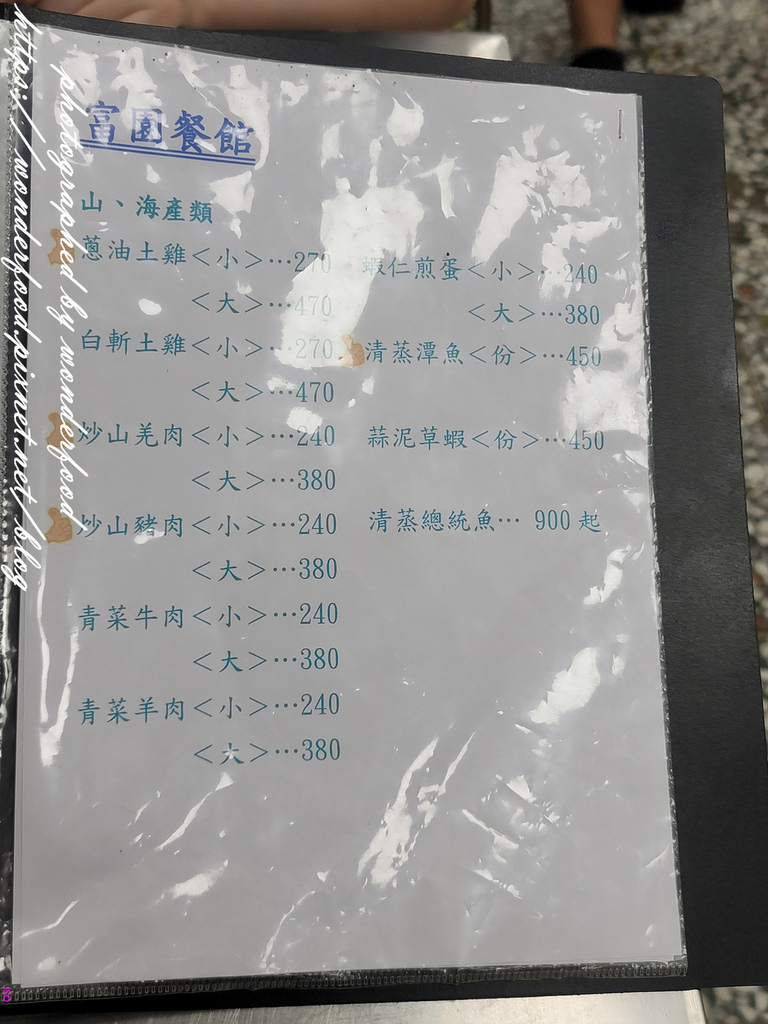 富園餐館
山、海產類
蔥油土雞<小>…270
<大>…470
白斬土雞<小>…270
<大>…470
炒山羌肉<小>…240
<大>…380
炒山豬肉<小>…240
<大>…380
青菜牛肉<小>…240
<大>…380
青菜羊肉<小>…240
<大>…380
蝦仁煎蛋<小>…240
<大>…380
清蒸潭魚<份>…450
蒜泥草蝦<份>…450
清蒸總統魚… 900起
photographed by wonderfood
https://wonderfood.pixnet.net/blog